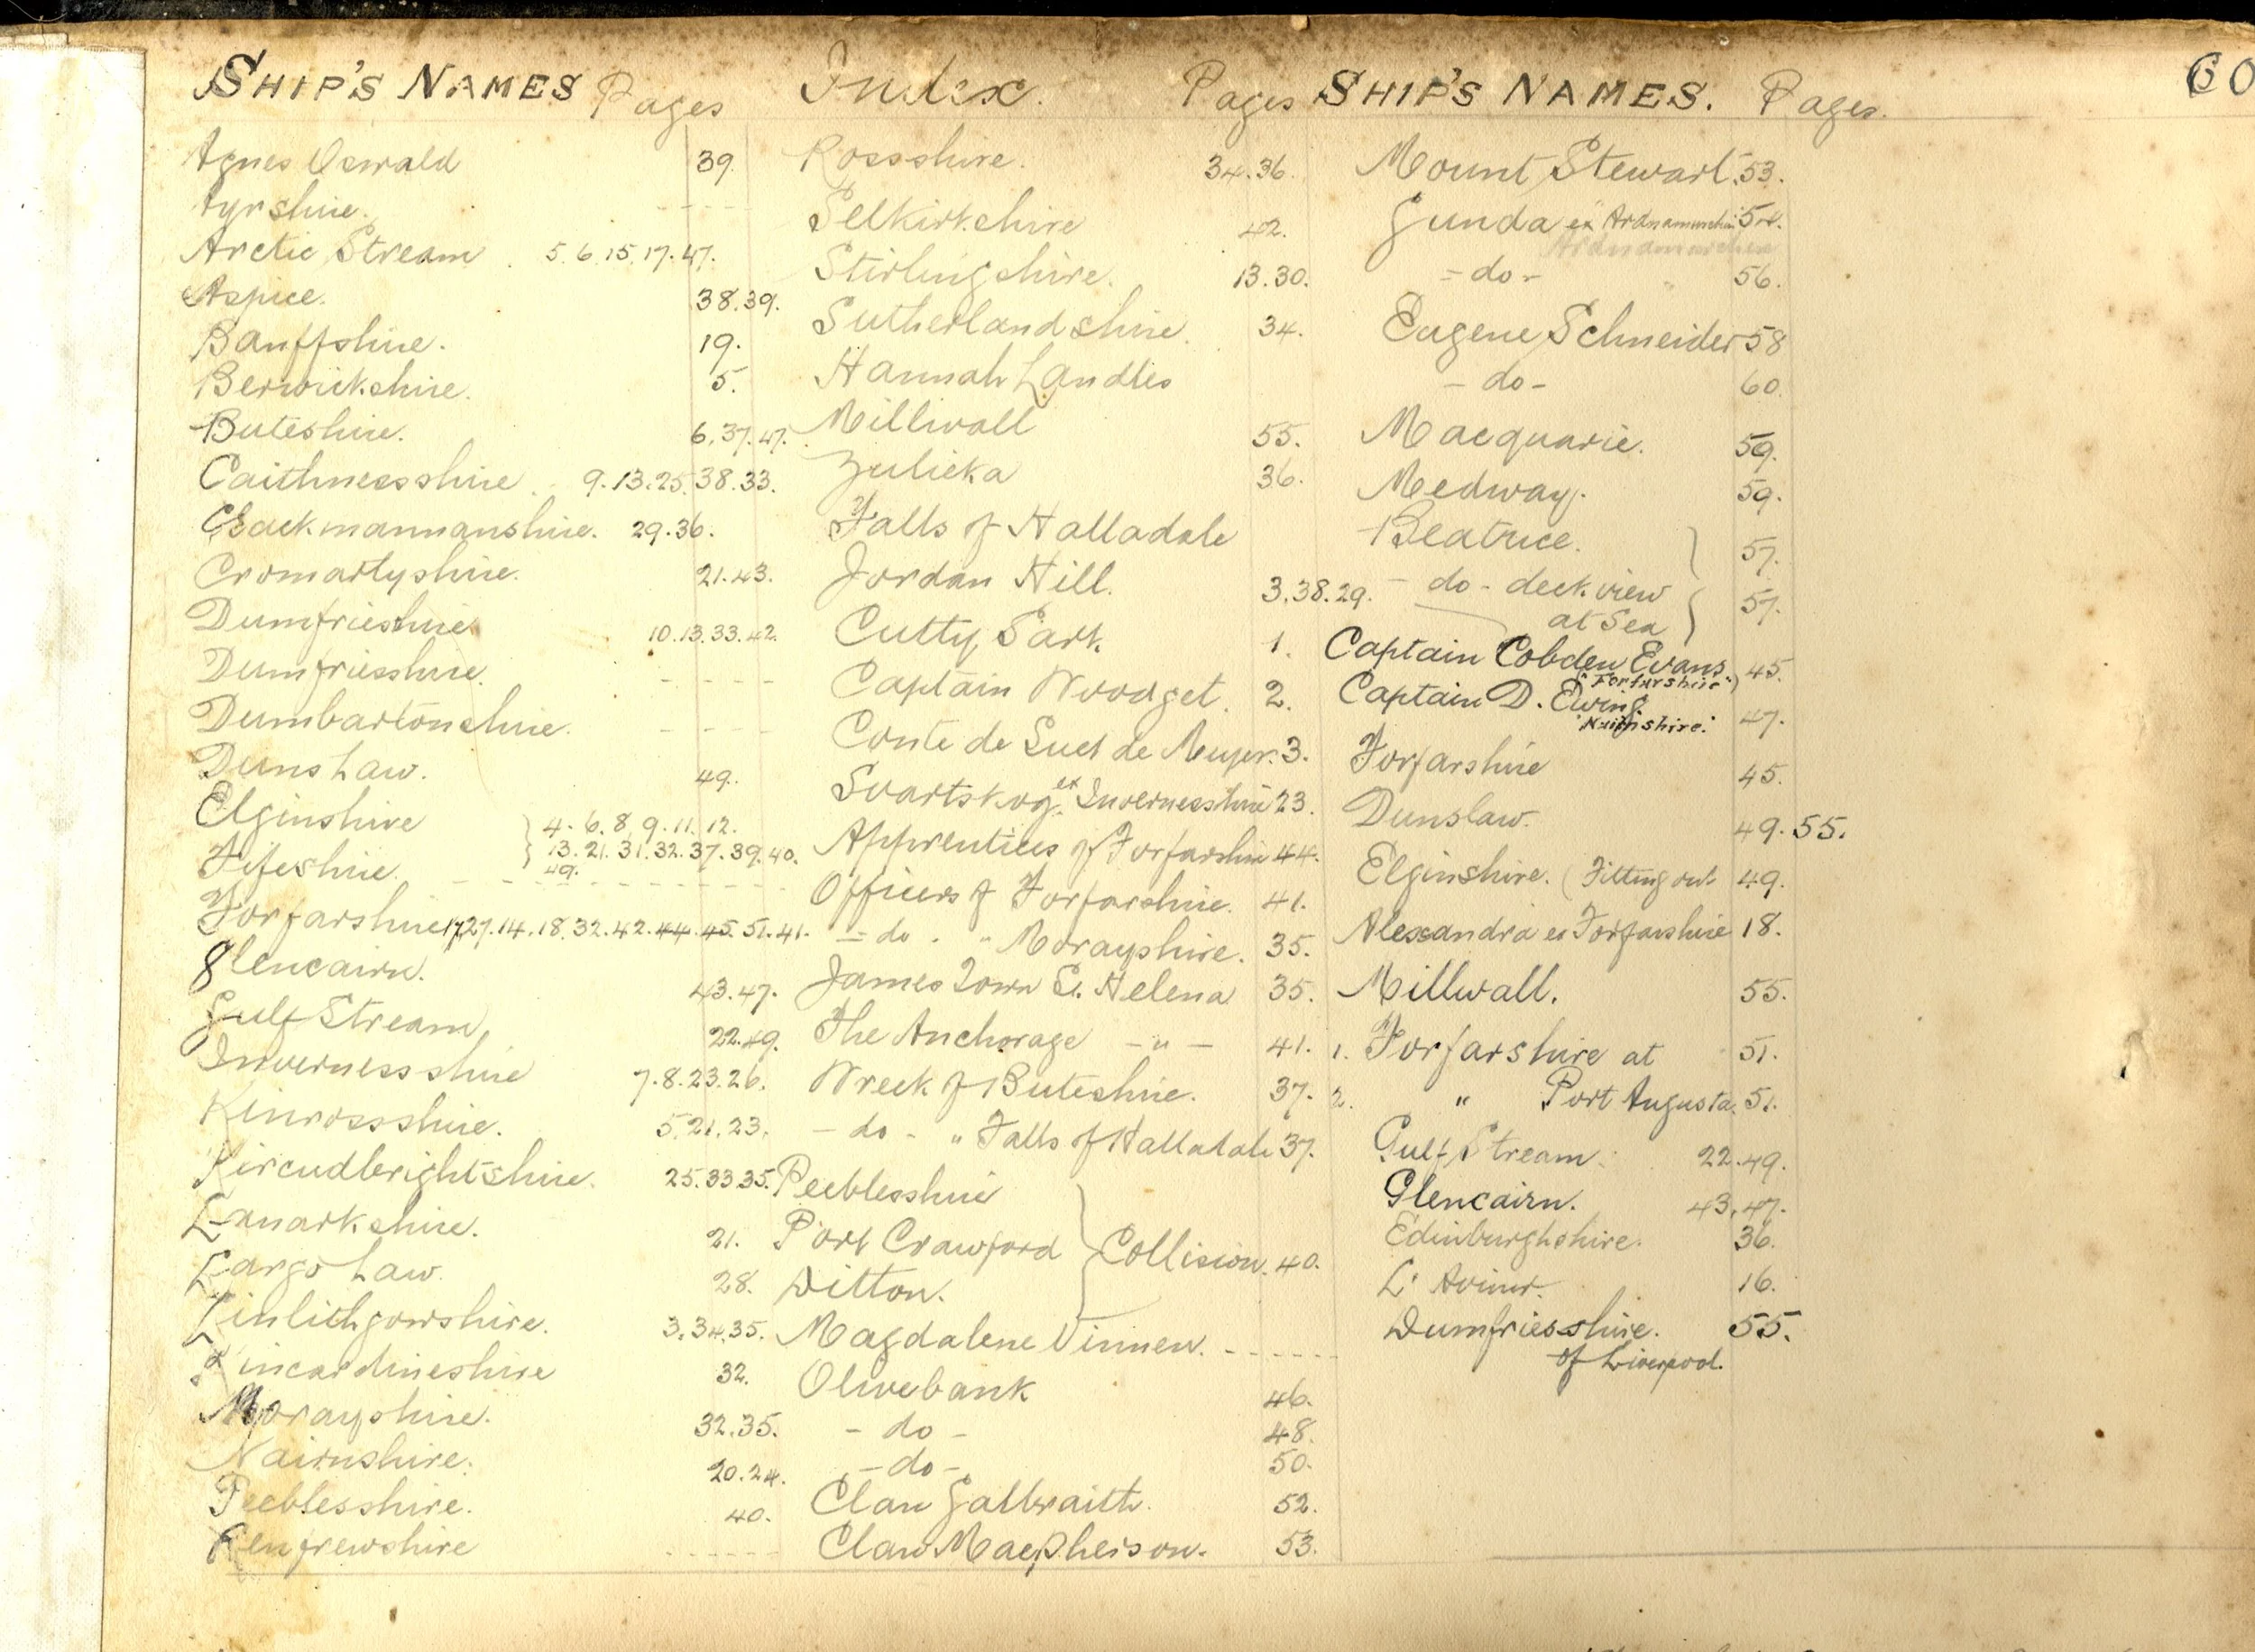 SHIP'S NAMES Pages Index. Pages SHIP'S NAMES. Pages. 60
Agnes Oswald 39.
Ayrshire. - - - -
Arctic Stream . 5.6.15.17.47.
Aspice. 38.39.
Banffshire. 19.
Berwickshire. 5.
Buteshire. 6.37.47.
Caithnessshire. 9.13.25.38.33.
Clackmannanshire. 29.36.
Cromartyshire. 21.43.
Dumfrieshire 10.13.33.42.
Dumfriesshire. - - - -
Dumbartonshire. - - - -
Duns Law. 49.
Elginshire } 4.6.8.9.11.12.
13.21.31.32.37.39.40.
49.
Fifeshire. - - - - - -
Forfarshire 17.27.14.18.32.42.44.45.51.41.
Glencairn. 43.47.
Gulf Stream, 22.49.
Invernessshire 7.8.23.26.
Kinrossshire. 5.21.23.
Kircudbrightshire. 25.33.35.
Lanarkshire. 21.
Largo Law. 28.
Linlithgowshire. 3.34.35.
Kincardineshire 32.
Morayshire. 32.35.
Nairnshire. 20.24.
Peeblesshire. 40.
Renfrewshire - - - - - -
Rossshire. 34.36.
Selkirkshire 42.
Stirlingshire. 13.30.
Sutherlandshire. 34.
Hannah Landles
Milliwall 55.
Zulieka 36.
Falls of Halladale
Jordan Hill. 3.38.29.
Cutty Sark. 1.
Captain Woodget. 2.
Conte de Suet de Meyer. 3.
Svartskog. ex Invernessshire 23.
Apprentices of Forfarshire 44.
Officers of Forfarshire. 41.
= do - " Morayshire. 35.
James Town St. Helena 35.
The Anchorage - " - 41.
Wreck of Buteshire. 37.
- do - " Falls of Halladale 37.
Peeblesshire
Port Crawford } Collision. 40.
Ditton.
Magdalene Vinnen. - - - - - -
Olivebank 46.
- do - 48.
- do - 50.
Clan Galbraith. 52.
Clan Macpherson. 53.
Mount Stewart. 53.
Gunda ex Ardnamurchan 54.
Ardnamurchan
- do - " 56.
Eugene Schneider 58
- do - 60.
Macquarie. 59.
Medway. 59.
Beatrice. } 57.
- do - deck view } 57.
at Sea
Captain Cobden Evans. 45.
"Forfarshire"
Captain D. Ewing. 47.
"Nairnshire."
Forfarshire 45.
Dunslaw. 49.55.
Elginshire. (Fitting out 49.
Alexandra ex Forfarshire 18.
Millwall. 55.
1. Forfarshire at 51.
2. " Port Augusta. 51.
Gulf Stream. 22.49.
Glencairn. 43.47.
Edinburghshire. 36.
L' 16.
Dumfriesshire. 55.
of Liverpool.